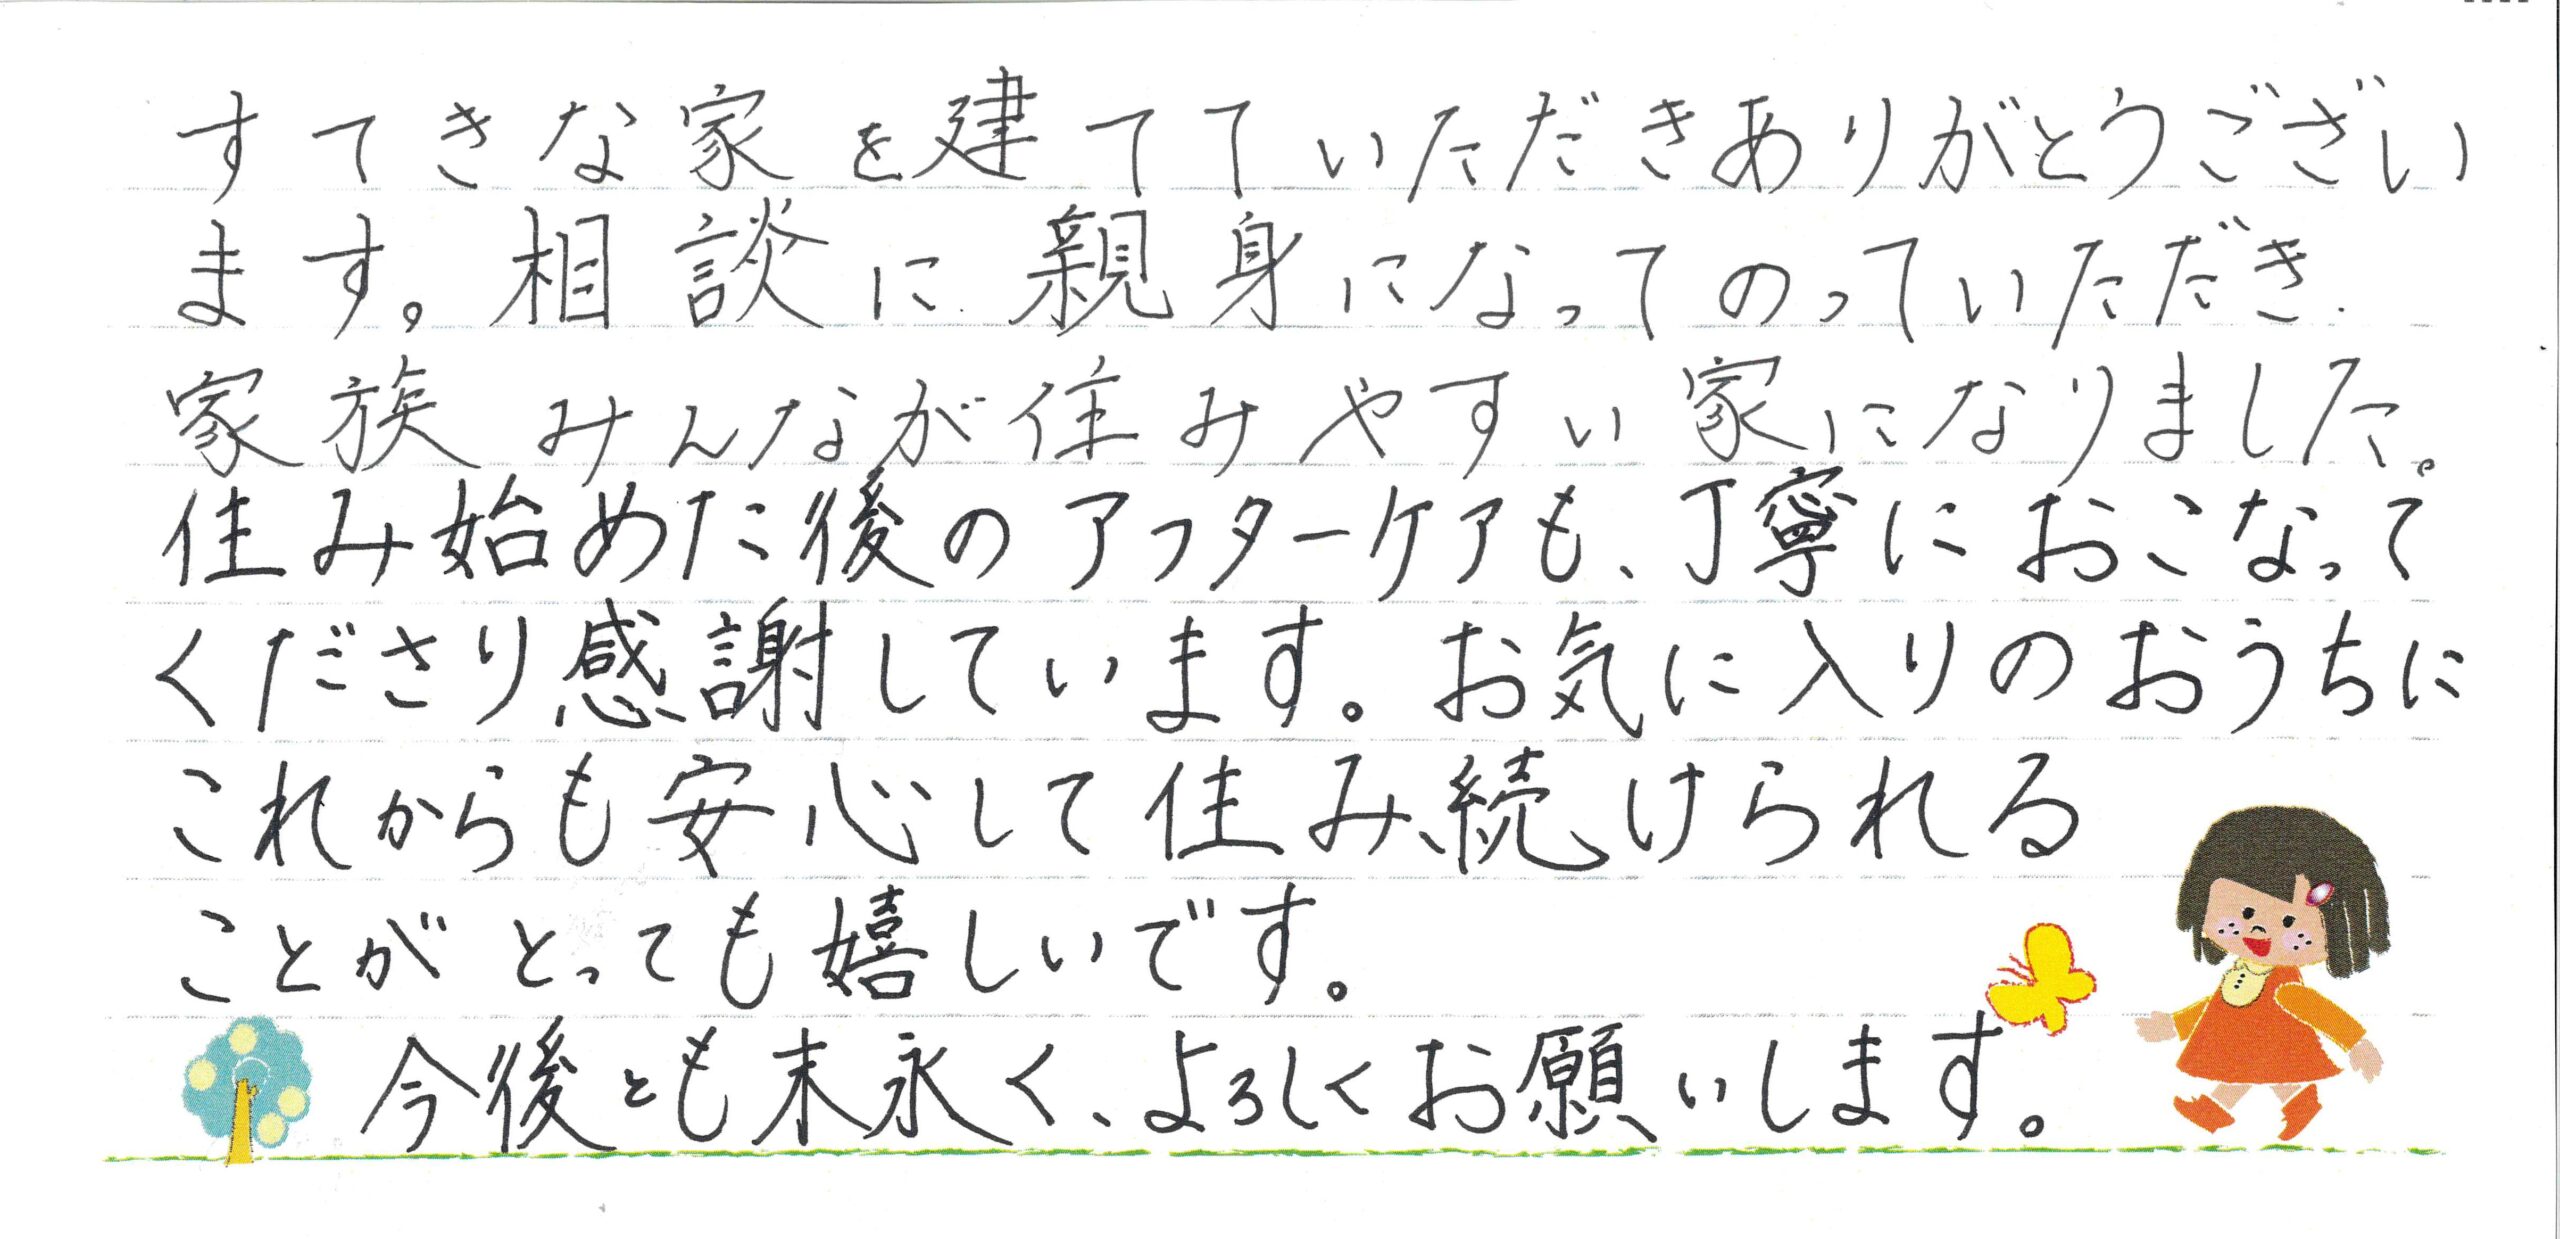 すてきな家を建てていただきありがとうござい
ます。相談に親身になってのっていただき
家族みんなが住みやすい家になりました。
住み始めた後のアフターケアも、丁寧におこなって
くださり感謝しています。お気に入りのおうちに
これからも安心して住み続けられる
ことがとっても嬉しいです。
今後とも末永く、よろしくお願いします。